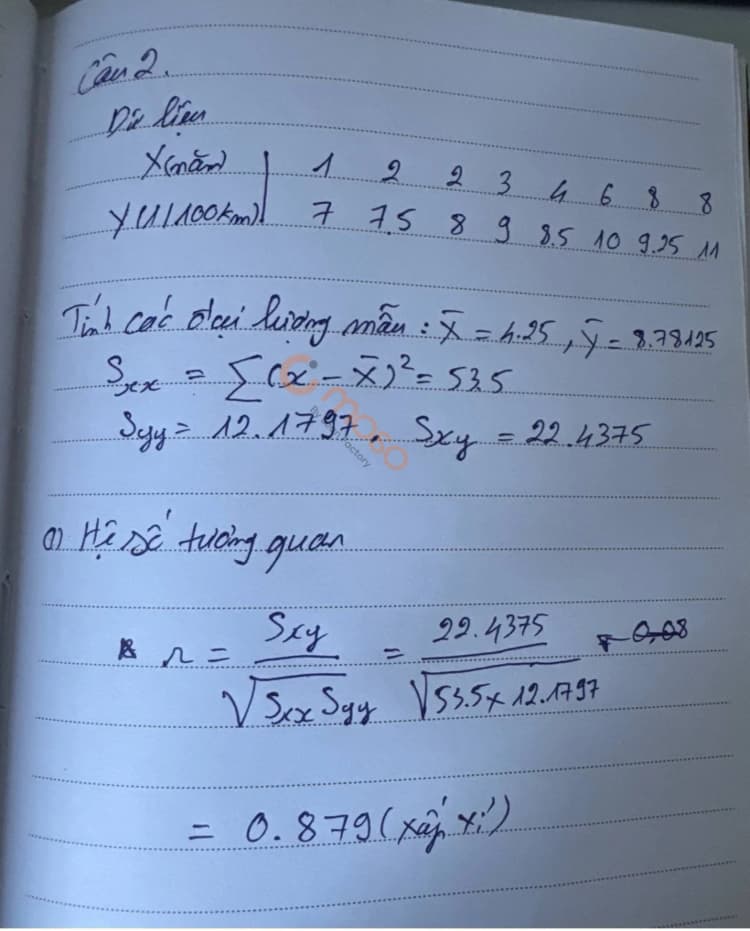 Câu 2.
Dữ liệu
X (năm) | 1 2 2 3 4 6 8 8
Y (l/100km) | 7 7.5 8 9 8.5 10 9.25 11
Tính các đại lượng mẫu : X̄ = 4.25 , Ȳ = 8.78125
Sxx = ∑(x - x̄)² = 53.5
Syy = 12.1797 , Sxy = 22.4375
a) Hệ số tương quan
r = Sxy / √(Sxx Syy) = 22.4375 / √(53.5 x 12.1797)
= 0.879 (xấp xỉ)
moso